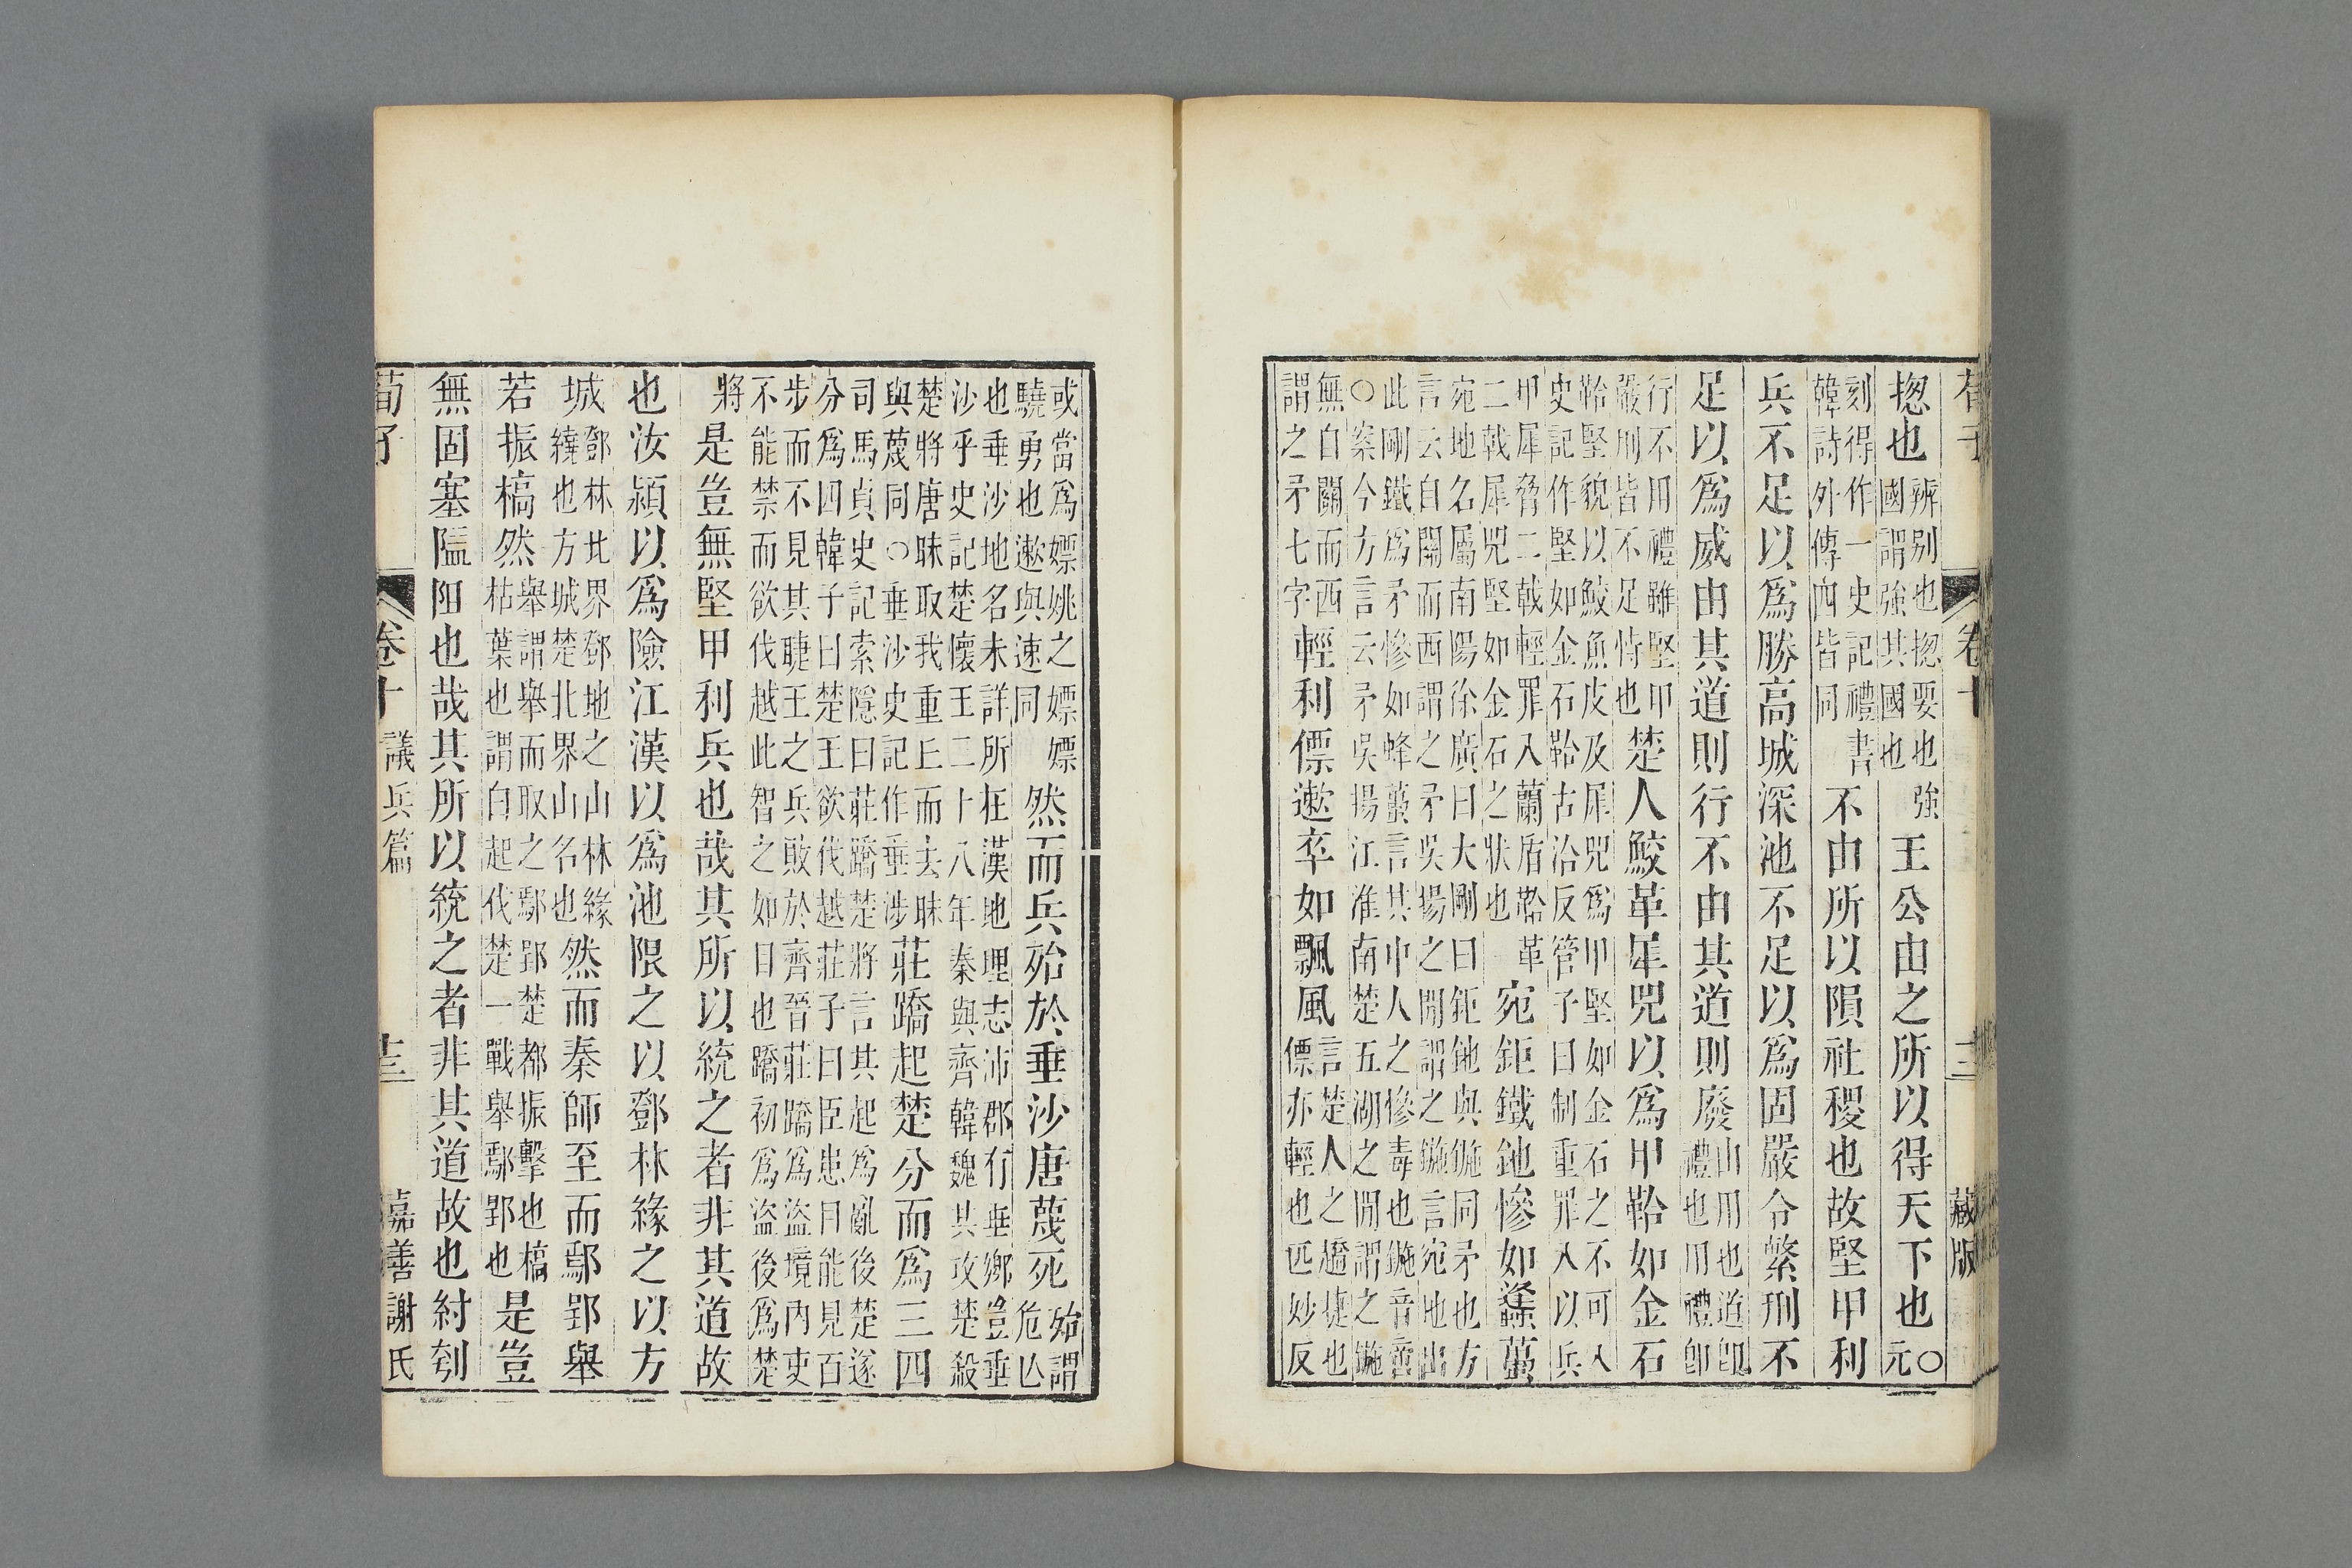 荀子
卷十
十二
藏版
揔也辨别也揔要也強國謂強其國也王公由之所以得天下也○元
刻得作一史記禮書韓詩外傳四皆同不由所以隕社稷也故堅甲利
兵不足以爲勝高城深池不足以爲固嚴令繁刑不
足以爲威由其道則行不由其道則廢由用也道卽禮也用禮卽
行不用禮雖堅甲嚴刑皆不足恃也楚人鮫革犀兕以爲甲鞈如金石
鞈堅貌以鮫魚皮及犀兕爲甲堅如金石之不可入史記作堅如金石鞈古洽反管子曰制重罪入以兵
甲犀脅二戟輕罪入蘭盾鞈革二戟犀兕堅如金石之狀也宛鉅鐵釶慘如蠭蠆
宛地名屬南陽徐廣曰大剛曰鉅釶與鍦同矛也方言云自關而西謂之矛吳揚之閒謂之鍦言宛地出
此剛鐵爲矛慘如蜂蠆言其中人之慘毒也鍦音啻○案今方言云矛吳揚江淮南楚五湖之閒謂之鍦
無自關而西謂之矛七字輕利僄遫卒如飄風言楚人之趫捷也僄亦輕也匹妙反
或當爲嫖姚之嫖嫖驍勇也遫與速同然而兵殆於垂沙唐蔑死殆謂危亾
也垂沙地名未詳所在漢地理志沛郡有垂鄉豈垂沙乎史記楚懷王二十八年秦與齊韓魏共攻楚殺
楚將唐昧取我重丘而去昧與蔑同○垂沙史記作垂涉莊蹻起楚分而爲三四
司馬貞史記索隱曰莊蹻楚將言其起爲亂後楚遂分爲四韓子曰楚王欲伐越莊子曰臣患目能見百
步而不見其睫王之兵敗於齊晉莊蹻爲盜境內吏不能禁而欲伐越此智之如目也蹻初爲盜後爲楚
將是豈無堅甲利兵也哉其所以統之者非其道故
也汝潁以爲險江漢以爲池限之以鄧林緣之以方
城鄧林北界鄧地之山林緣繞也方城楚北界山名也然而秦師至而鄢郢舉
若振槁然舉謂舉而取之鄢郢楚都振擊也槁枯葉也謂白起伐楚一戰舉鄢郢也是豈
無固塞隘阻也哉其所以統之者非其道故也紂刳
荀子
卷十
議兵篇
十三
嘉善謝氏